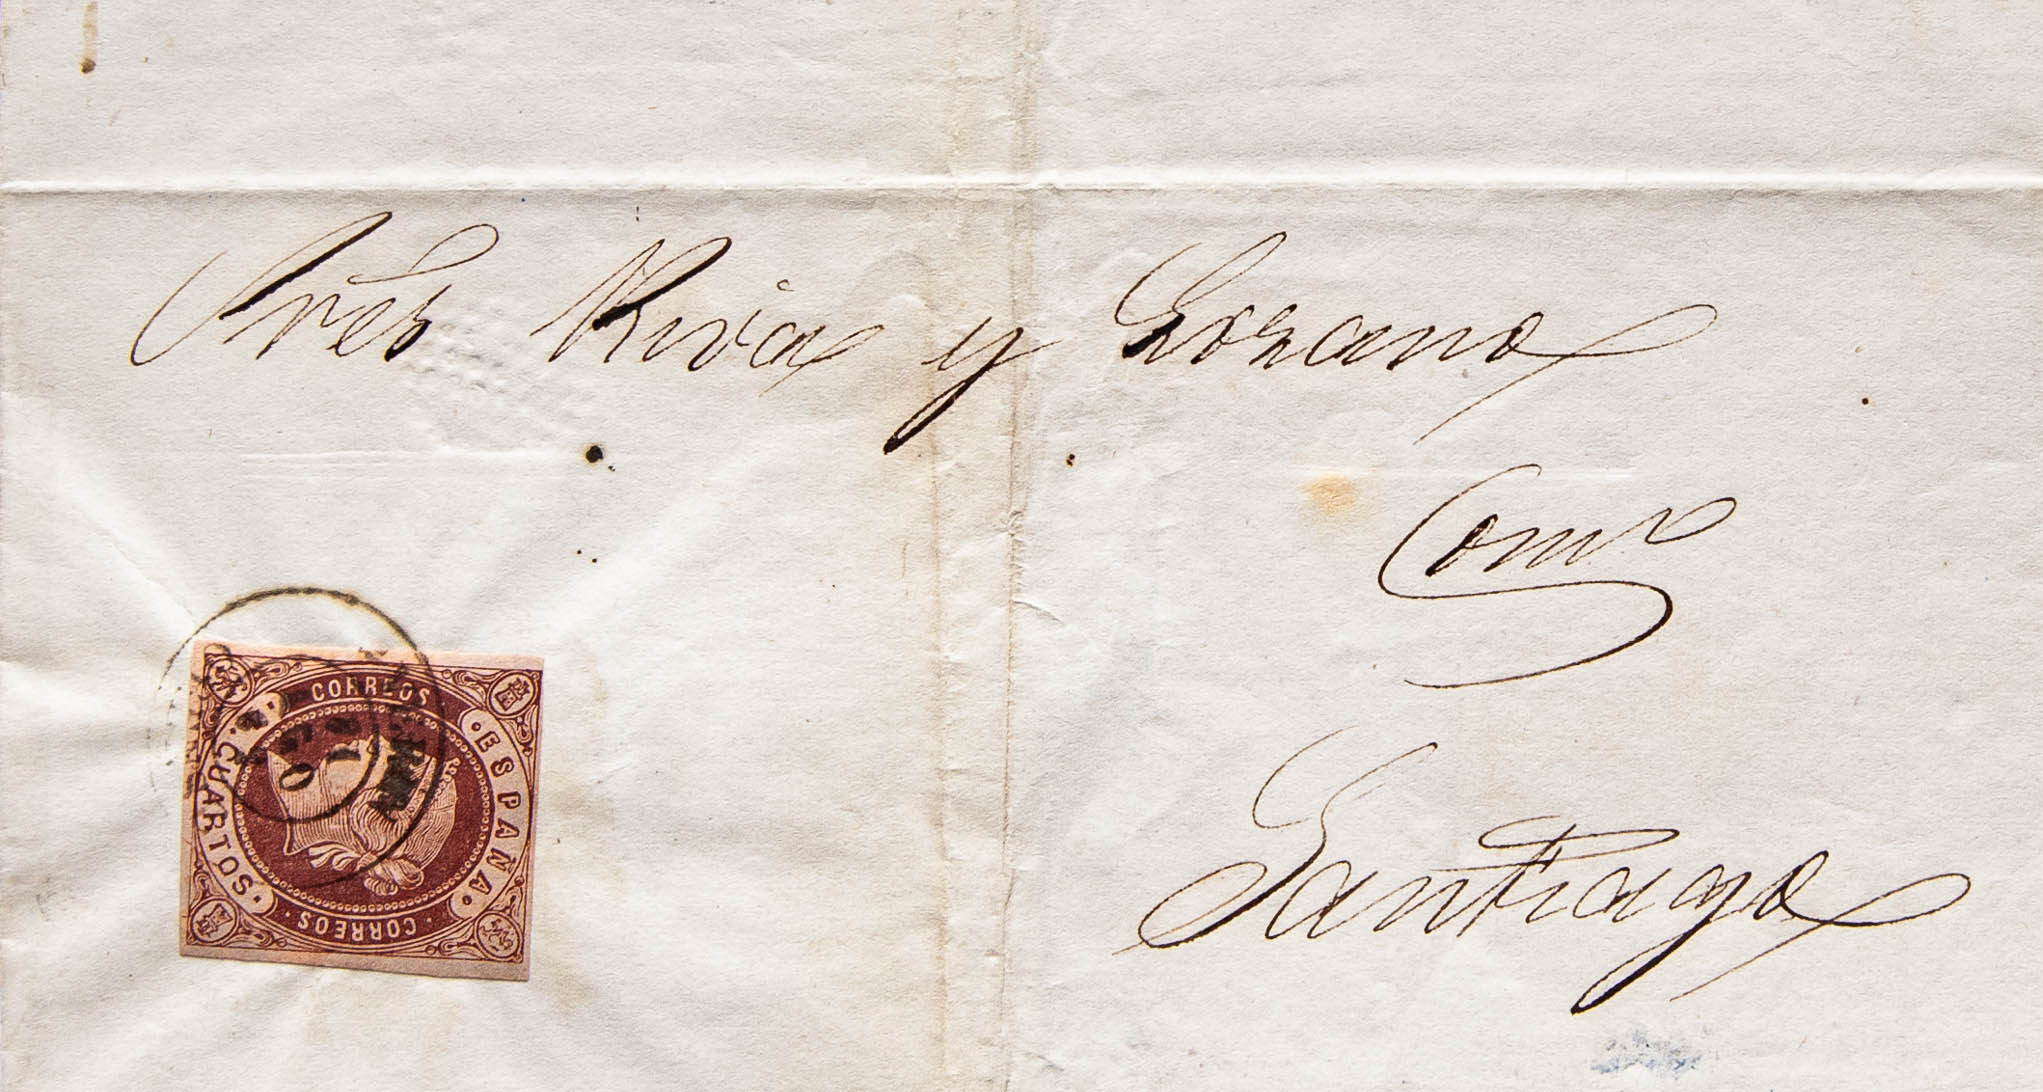 Sres Rivas y Lozano
Com⁰
Santiago
CORREOS
ESPAÑA
CORREOS
CUARTOS